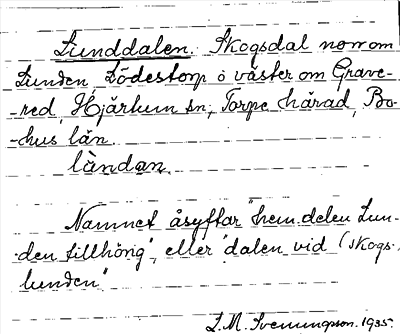 Lunddalen. Skogsdal norr om
Lunden, Lödestorp o väster om Grave-
-red, Hjärtum sn, Torpe härad, Bo-
-hus län.
lùndan.
Namnet åsyftar "hem.delen Lun-
-den tillhörig", eller "dalen vid (skogs-
lunden"
L. M. Svenungsson. 1935.